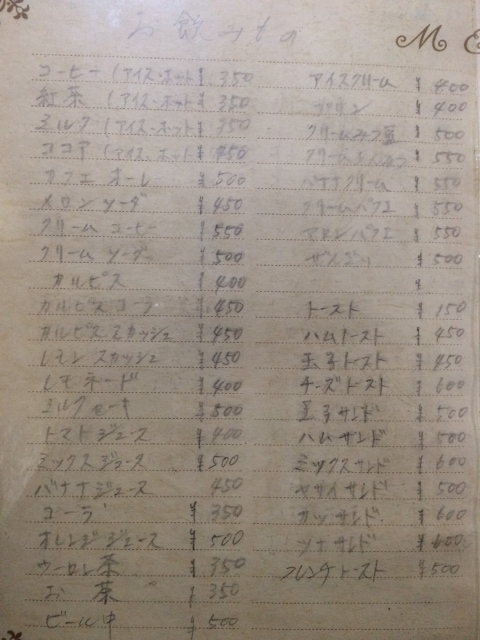 お飲みもの
M E
コーヒー (アイス・ホット ¥ 350
紅茶 (アイス・ホット ¥ 350
ミルク (アイス・ホット ¥ 350
ココア (アイス・ホット ¥ 450
カフェ オーレ ¥ 500
メロン ソーダ ¥ 450
クリーム コーヒー ¥ 550
クリーム ソーダー ¥ 500
カルピス ¥ 400
カルピス コーラ ¥ 450
カルピス スカッシュ ¥ 450
レモン スカッシュ ¥ 450
レモネード ¥ 400
ミルクセーキ ¥ 500
トマトジュース ¥ 400
ミックスジュース ¥ 500
バナナジュース 450
コーラ ¥ 350
オレンジジュース ¥ 500
ウーロン茶 ¥ 350
お 茶 ¥ 350
ビール中 ¥ 500
アイスクリーム ¥ 400
プリン ¥ 400
クリームみつ豆 ¥ 500
クリームあんみつ ¥ 550
バナナクリーム ¥ 550
クリームパフェ ¥ 550
マロンパフェ ¥ 550
ぜんざい ¥ 500
¥
トースト ¥ 150
ハムトースト ¥ 450
玉子トースト ¥ 450
チーズトースト ¥ 600
玉子サンド ¥ 500
ハムサンド ¥ 500
ミックスサンド ¥ 600
ヤサイサンド ¥ 500
カツサンド ¥ 600
ツナサンド ¥ 600
フレンチトースト ¥ 500